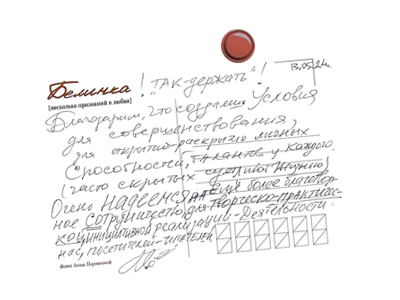 13.05.24г.
Белинка! "ТАК-держать"!
[несколько признаний в любви]
Благодарим, что создали Условия
для совершенствования,
для открытно-раскрытия личных
Способностей, Талантов у каждого
(часто скрытых
Очень НАДЕЕМСЯ на Ещё более благотвор-
ное Сотрудничество для Творческо-практичес-
кой инициативной реализации-Деятельности
нас, посетителей-читателей
Фото Анны Порошиной